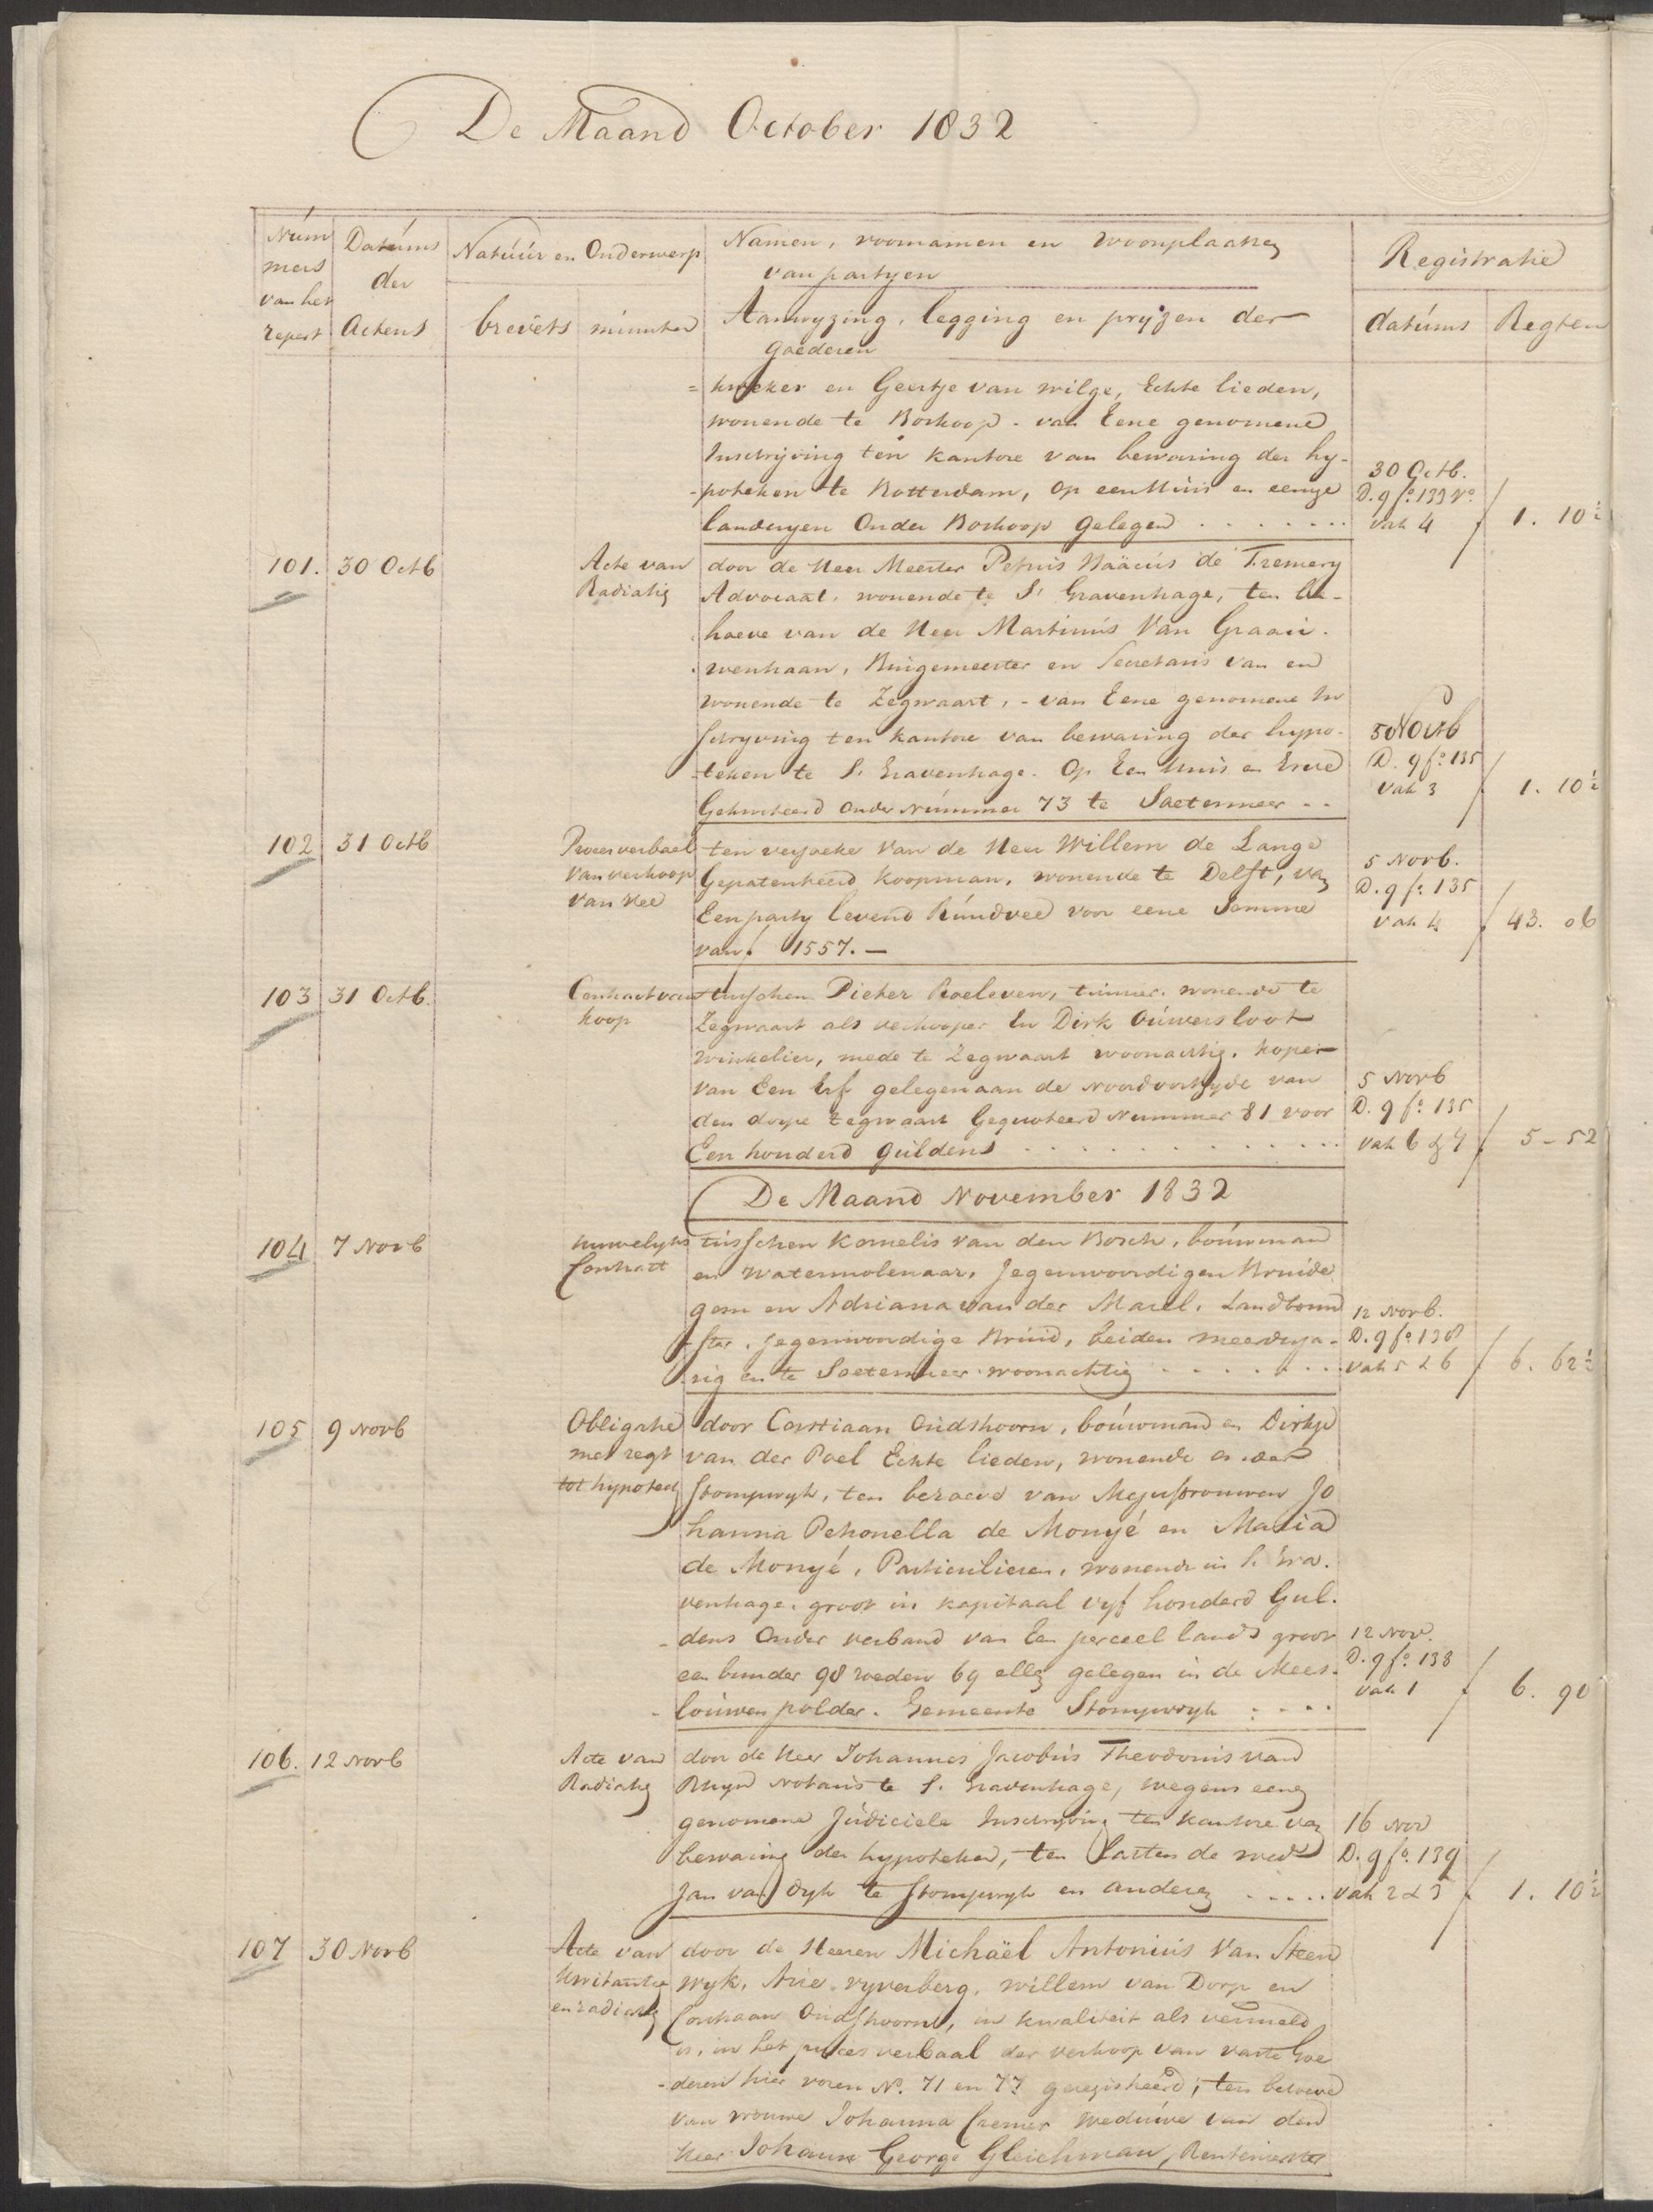 De Maand October 1832
Num
mers
van het
repert
Datums
der
Actens
Natuur en Onderwerp
brevets
minuten
Namen, voornamen en woonplaatsen
van partyen
Aanwyzing, legging en pryzen der
goederen
Registratie
datums
Regten
= kweker en Geertje van Wilge, Echte lieden,
wonende te Boskoop - van Eene genomene
Inschrijving ten kantore van bewaring der hy-
-potheken te Rotterdam, op een Huis en eenige
landeryen Onder Boskoop gelegen
30 Octb.
D. 9 fo. 133 vo.
vak 4
1. 10½
101. 30 Octb
Acte van
Radiatie
door de Heer Meester Petrus de Fremery
Advocaat, wonende te S' Gravenhage, ten be-
hoeve van de Heer Martinus Van Graau-
wenhaan, Burgemeester en Secretaris van en
wonende te Zegwaart, - van Eene genomene In
schryving ten kantore van bewaring der hypo-
-teken te S. Gravenhage. Op Een Huis en Erve
Gekwoteerd onder Nummer 73 te Soetermeer
5 Novb
D. 9 fo. 135
vak 3
1. 10½
102 31 Octb
Procesverbael
van verkoop
van Vee
ten verzoeke van de Heer Willem de Lange
Gepatenteerd Koopman, wonende te Delft, van
Een party levend Rundvee voor eene Somme
van f 1557. —
5 Novb.
D. 9 fo. 135
vak 4
43. 06
103 31 Octb.
Contract van
koop
tusschen Pieter Roeleven, timmer. wonende te
Zegwaart als verkooper En Dirk Ouwersloot
Winkelier, mede te Zegwaart woonachtig, koper
van Een Erf gelegen aan de Noordoostzyde van
den dorpe Zegwaart Gequoteerd Nummer 81 voor
Een honderd guldens
5 Novb
D. 9 fo. 135
vak 6 & 7
5 - 52
De Maand November 1832
104 7 Novb
Huwelyks
Contract
tusschen Kornelis van den Bosch, bouwman
en Watermolenaar, Jegenwoordigen Bruide
gom en Adriana van der Marel, Landbouw
ster, jegenwoordige Bruid, beiden meerderja-
rig en te Soetermeer woonachtig
12 Novb.
D. 9 fo. 138
vak 5 & 6
6. 62½
105 9 Novb
Obligatie
met regt
tot hypoteek
door Corstiaan Oudshoorn, bouwman en Dirkje
van der Poel Echte lieden, wonende onder
Stompwyk, ten behoeve van Mejufvrouwen Jo
hanna Petronella de Monyé en Maria
de Monyé, Particulieren, wonende in S. Gra-
venhage, groot in kapitaal vyf honderd Gul-
-dens Onder verband van Een perceel lands groot
een bunder 98 roeden 69 ellen gelegen in de Mees-
-louwen polder. Gemeente Stompwyk
12 Nov.
D. 9 fo. 138
vak 1
6. 90
106. 12 Novb
Acte van
Radiatie
door de Heer Johannes Jacobus Theodorus van
Rhyn Notaris te S. Gravenhage, wegens eene
genomene Judiciele Inschrijving ten kantore van
bewaring der hypoteken, ten lasten de wed
Jan van Dyk te Stompwyk en anderen
16 Nov
D. 9 fo. 139
vak 2 & 3
1. 10½
107 30 Novb
Acte van
Kwitantie
en radiatie
door de Heeren Michaël Antonius Van Steen
wyk, Arie Vyverberg, Willem van Dorp en
Corstiaan Oudshoorn, in kwaliteit als vermeld
is, in het proces verbaal der verkoop van vaste Goe
-deren hier voren No. 71 en 77 geregistreerd; ten behoeve
van vrouwe Johanna Cremer Weduwe van den
Heer Johann George Gleichman, Rentemeester